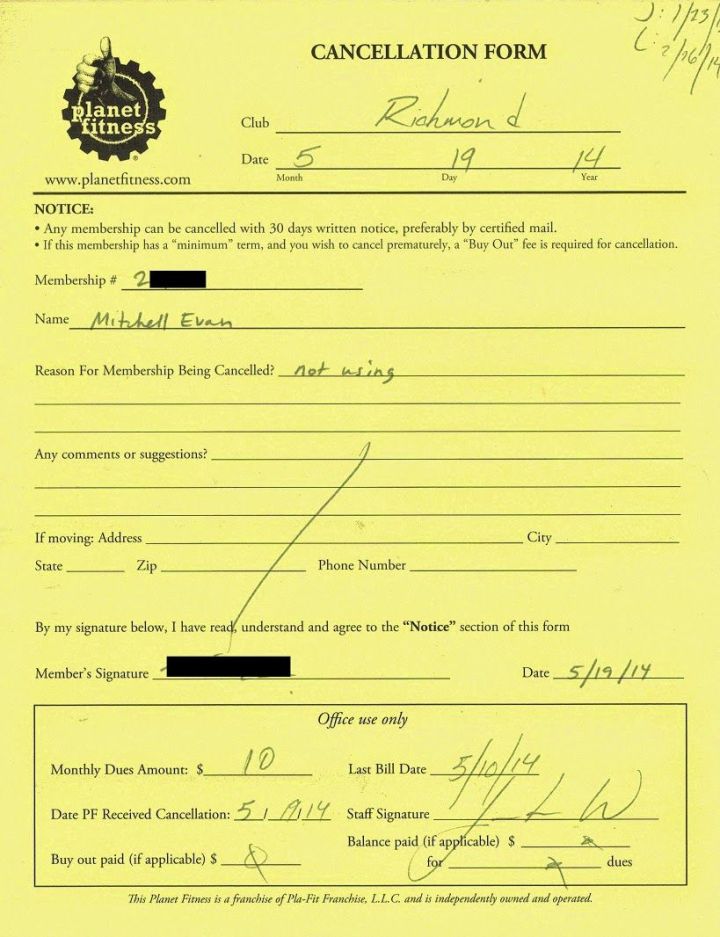 J: 1/23/
L: 2/26/14
CANCELLATION FORM
planet fitness®
www.planetfitness.com
Club Richmond
Date 5 19 14
Month Day Year
NOTICE:
• Any membership can be cancelled with 30 days written notice, preferably by certified mail.
• If this membership has a “minimum” term, and you wish to cancel prematurely, a “Buy Out” fee is required for cancellation.
Membership # 2
Name Mitchell Evan
Reason For Membership Being Cancelled? not using
Any comments or suggestions?
If moving: Address City
State Zip Phone Number
By my signature below, I have read, understand and agree to the “Notice” section of this form
Member's Signature Date 5/19/14
Office use only
Monthly Dues Amount: $ 10 Last Bill Date 5/10/14
Date PF Received Cancellation: 5/19/14 Staff Signature
Balance paid (if applicable) $
Buy out paid (if applicable) $ 0 for dues
This Planet Fitness is a franchise of Pla-Fit Franchise, L.L.C. and is independently owned and operated.